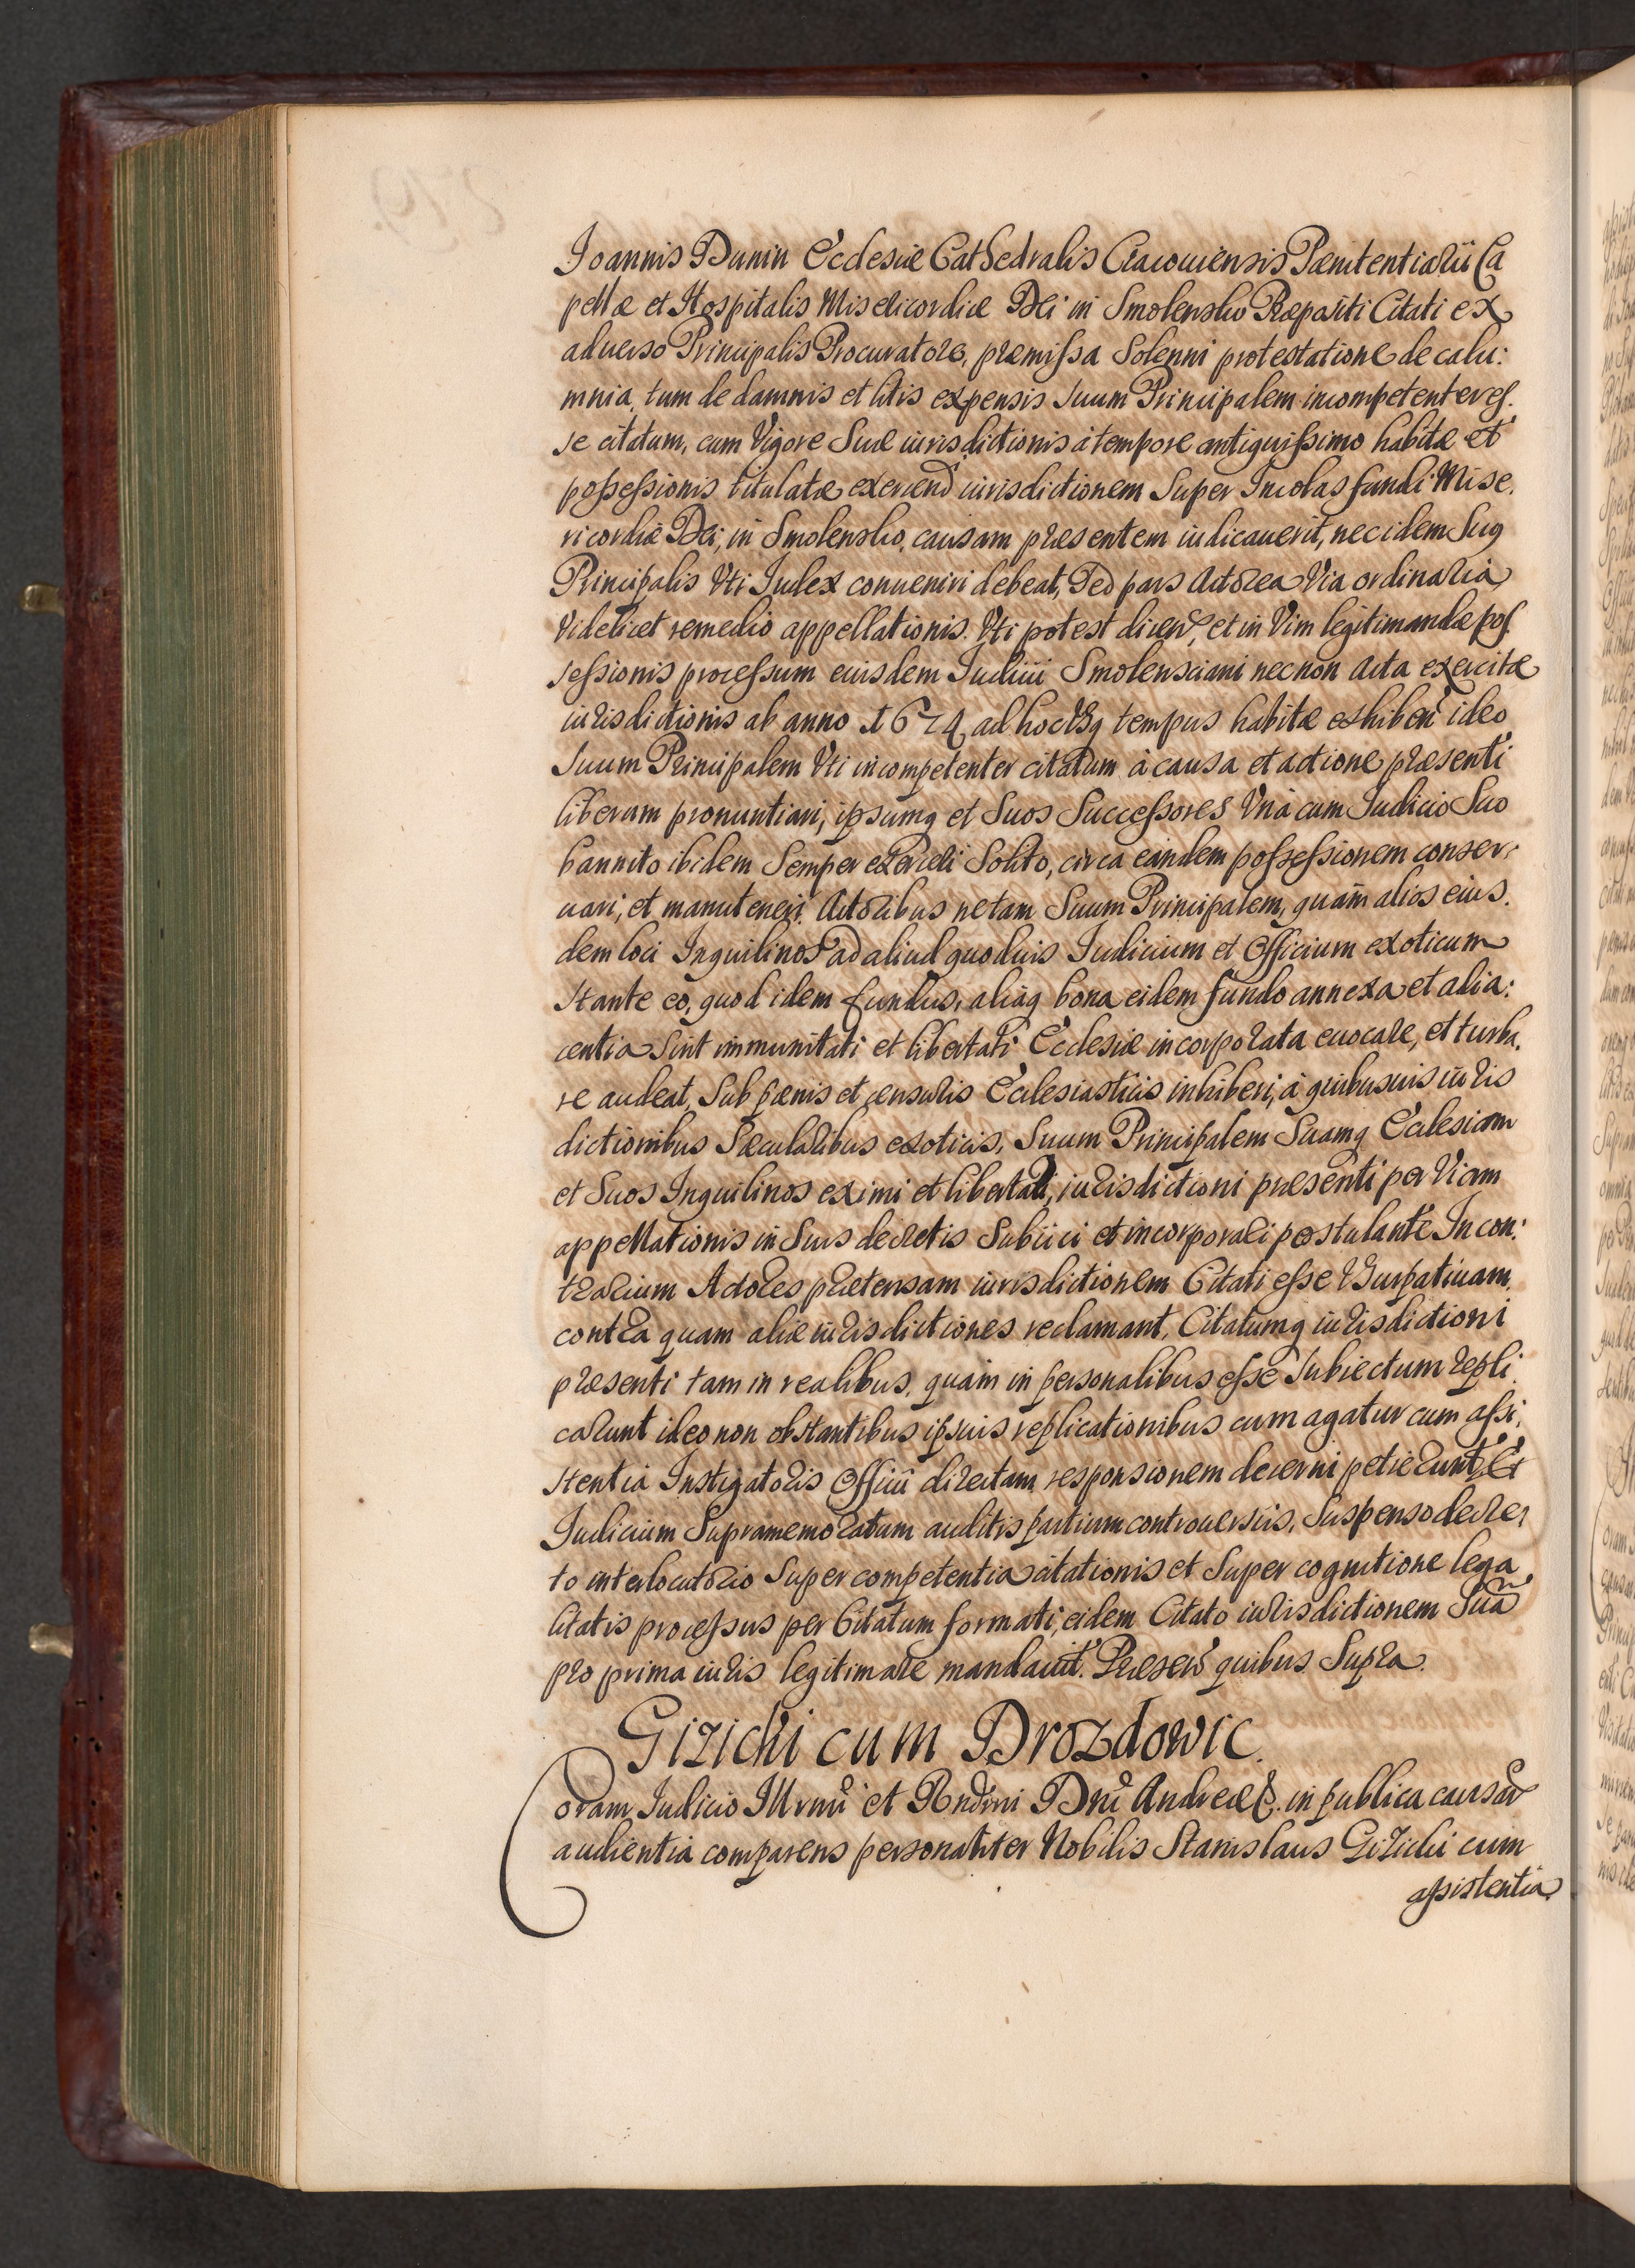 Joannis Dunin Ecclesiæ Cathedralis Cracouiensis Pænitentiarii Ca
pellæ et Hospitalis Misericordiæ Dei in Smolensko Præpositi Citati ex
aduerso Principalis Procuratore, præmissa Solenni protestatione de calu:
mnia, tum de damnis et litis expensis Suum Principalem incompetenter es.
se citatum, cum Vigore Suæ iurisdictionis à tempore antiquissimo habitæ et
possessionis titulatæ exercend iurisdictionem Super Incolas fundi Mise.
ricordiæ Dei, in Smolensko, causam præsentem iudicauerit, nec idem Suq
Principalis Vti Judex conueniri debeat, Sed pars Actorea Via ordinaria
Videlicet remedio appellationis. Vti potest dicen, et in Vim legitimandæ pos.
sessionis processum eiusdem Judicii Smolensciani necnon Acta exercitæ
iurisdictionis ab anno 1674 ad hoc Vsq tempus habitæ exhiben ideo
Suum Principalem Vti incompetenter citatum à causa et actione præsenti
liberum pronuntiari, ipsumq et Suos Successores Vnà cum Judicio Suo
bannito ibidem Semper exerceri Solito, circa eandem possessionem conser:
uari, et manuteneri. Actoribus ne tam Suum Principalem, quàm alios eius.
dem loci Inquilinos ad aliud quoduis Judicium et Officium exoticum
Stante eo, quod idem fundus, aliaq bona eidem fundo annexa et adia:
centia Sint immunitati et libertati Ecclesiæ incorporata euocare, et turba.
re audeat, Sub pænis et censuris Ecclesiasticis inhiberi, à quibusuis iuris
dictionibus Sæcularibus exoticis, Suum Principalem Suamq Ecclesiam
et Suos Inquilinos eximi et libertari, iurisdictioni præsenti per Viam
appellationis in Suis decretis Subiici et incorporari postulante In con:
trarium Actores prætensam iurisdictionem Citati esse Vsurpatiuam,
contra quam aliæ iurisdictiones reclamant, Citatumq iurisdictioni
præsenti tam in realibus, quàm in personalibus esse Subiectum repli.
carunt ideo non obstantibus ipsius replicationibus cum agatur cum assi.
stentia Instigatoris Officii directam responsionem decerni petierunt. Et
Judicium Supramemoratum auditis partium controuersiis, Suspenso decre:
to interlocutorio Super competentia citationis et Super cognitione lega
litatis processus per Citatum formati, eidem Citato iurisdictionem Suã
pro prima iuris legitimare mandauit. Præsen quibus Supra.
Gizicki cum Drozdowic.
Coram Judicio Illrmi et Rndmi Dni Andreæ &. in publica causar
audientia comparens personaliter Nobilis Stanislaus Gizicki cum
assistentia